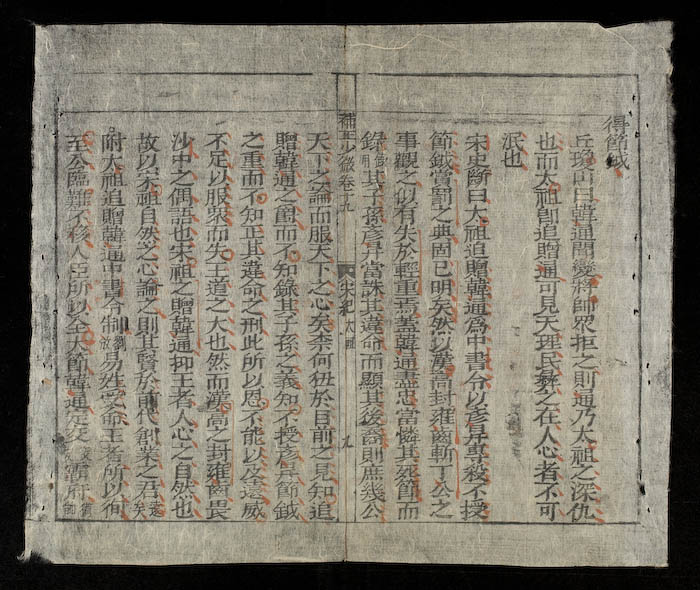 得節鉞
丘瓊山曰韓通聞變將師眾拒之則通乃太祖之深仇
也而太祖卽追贈通可見天理民彝之在人心者不可
泯也
宋史斷曰太祖追贈韓通爲中書令以彥昇專殺不授
節鉞賞罰之典固已明矣然以漢高封雍齒斬丁公之
事觀之似有失於輕重焉蓋韓通盡忠當憐其死節而
錄用其子孫彥昇當誅其違命而顯其後罰則庶幾公
卷十九 宋紀 太祖 九
天下之論而服天下之心矣柰何狃於目前之見知追
贈韓通之爵而不知錄其子孫之義知不授彥昇節鉞
之重而不知正其違命之刑此所以恩不能以及遠威
不足以服眾而失王道之大也然而漢高之封雍齒畏
沙中之偶語也宋祖之贈韓通抑王者人心之自然也
故以宋祖自然之心論之則其賢於前代創業之君遠矣
附太祖追贈韓通中書令制易姓受命王者所以徇
至公臨難不移人臣所以全大節韓通定交霸府